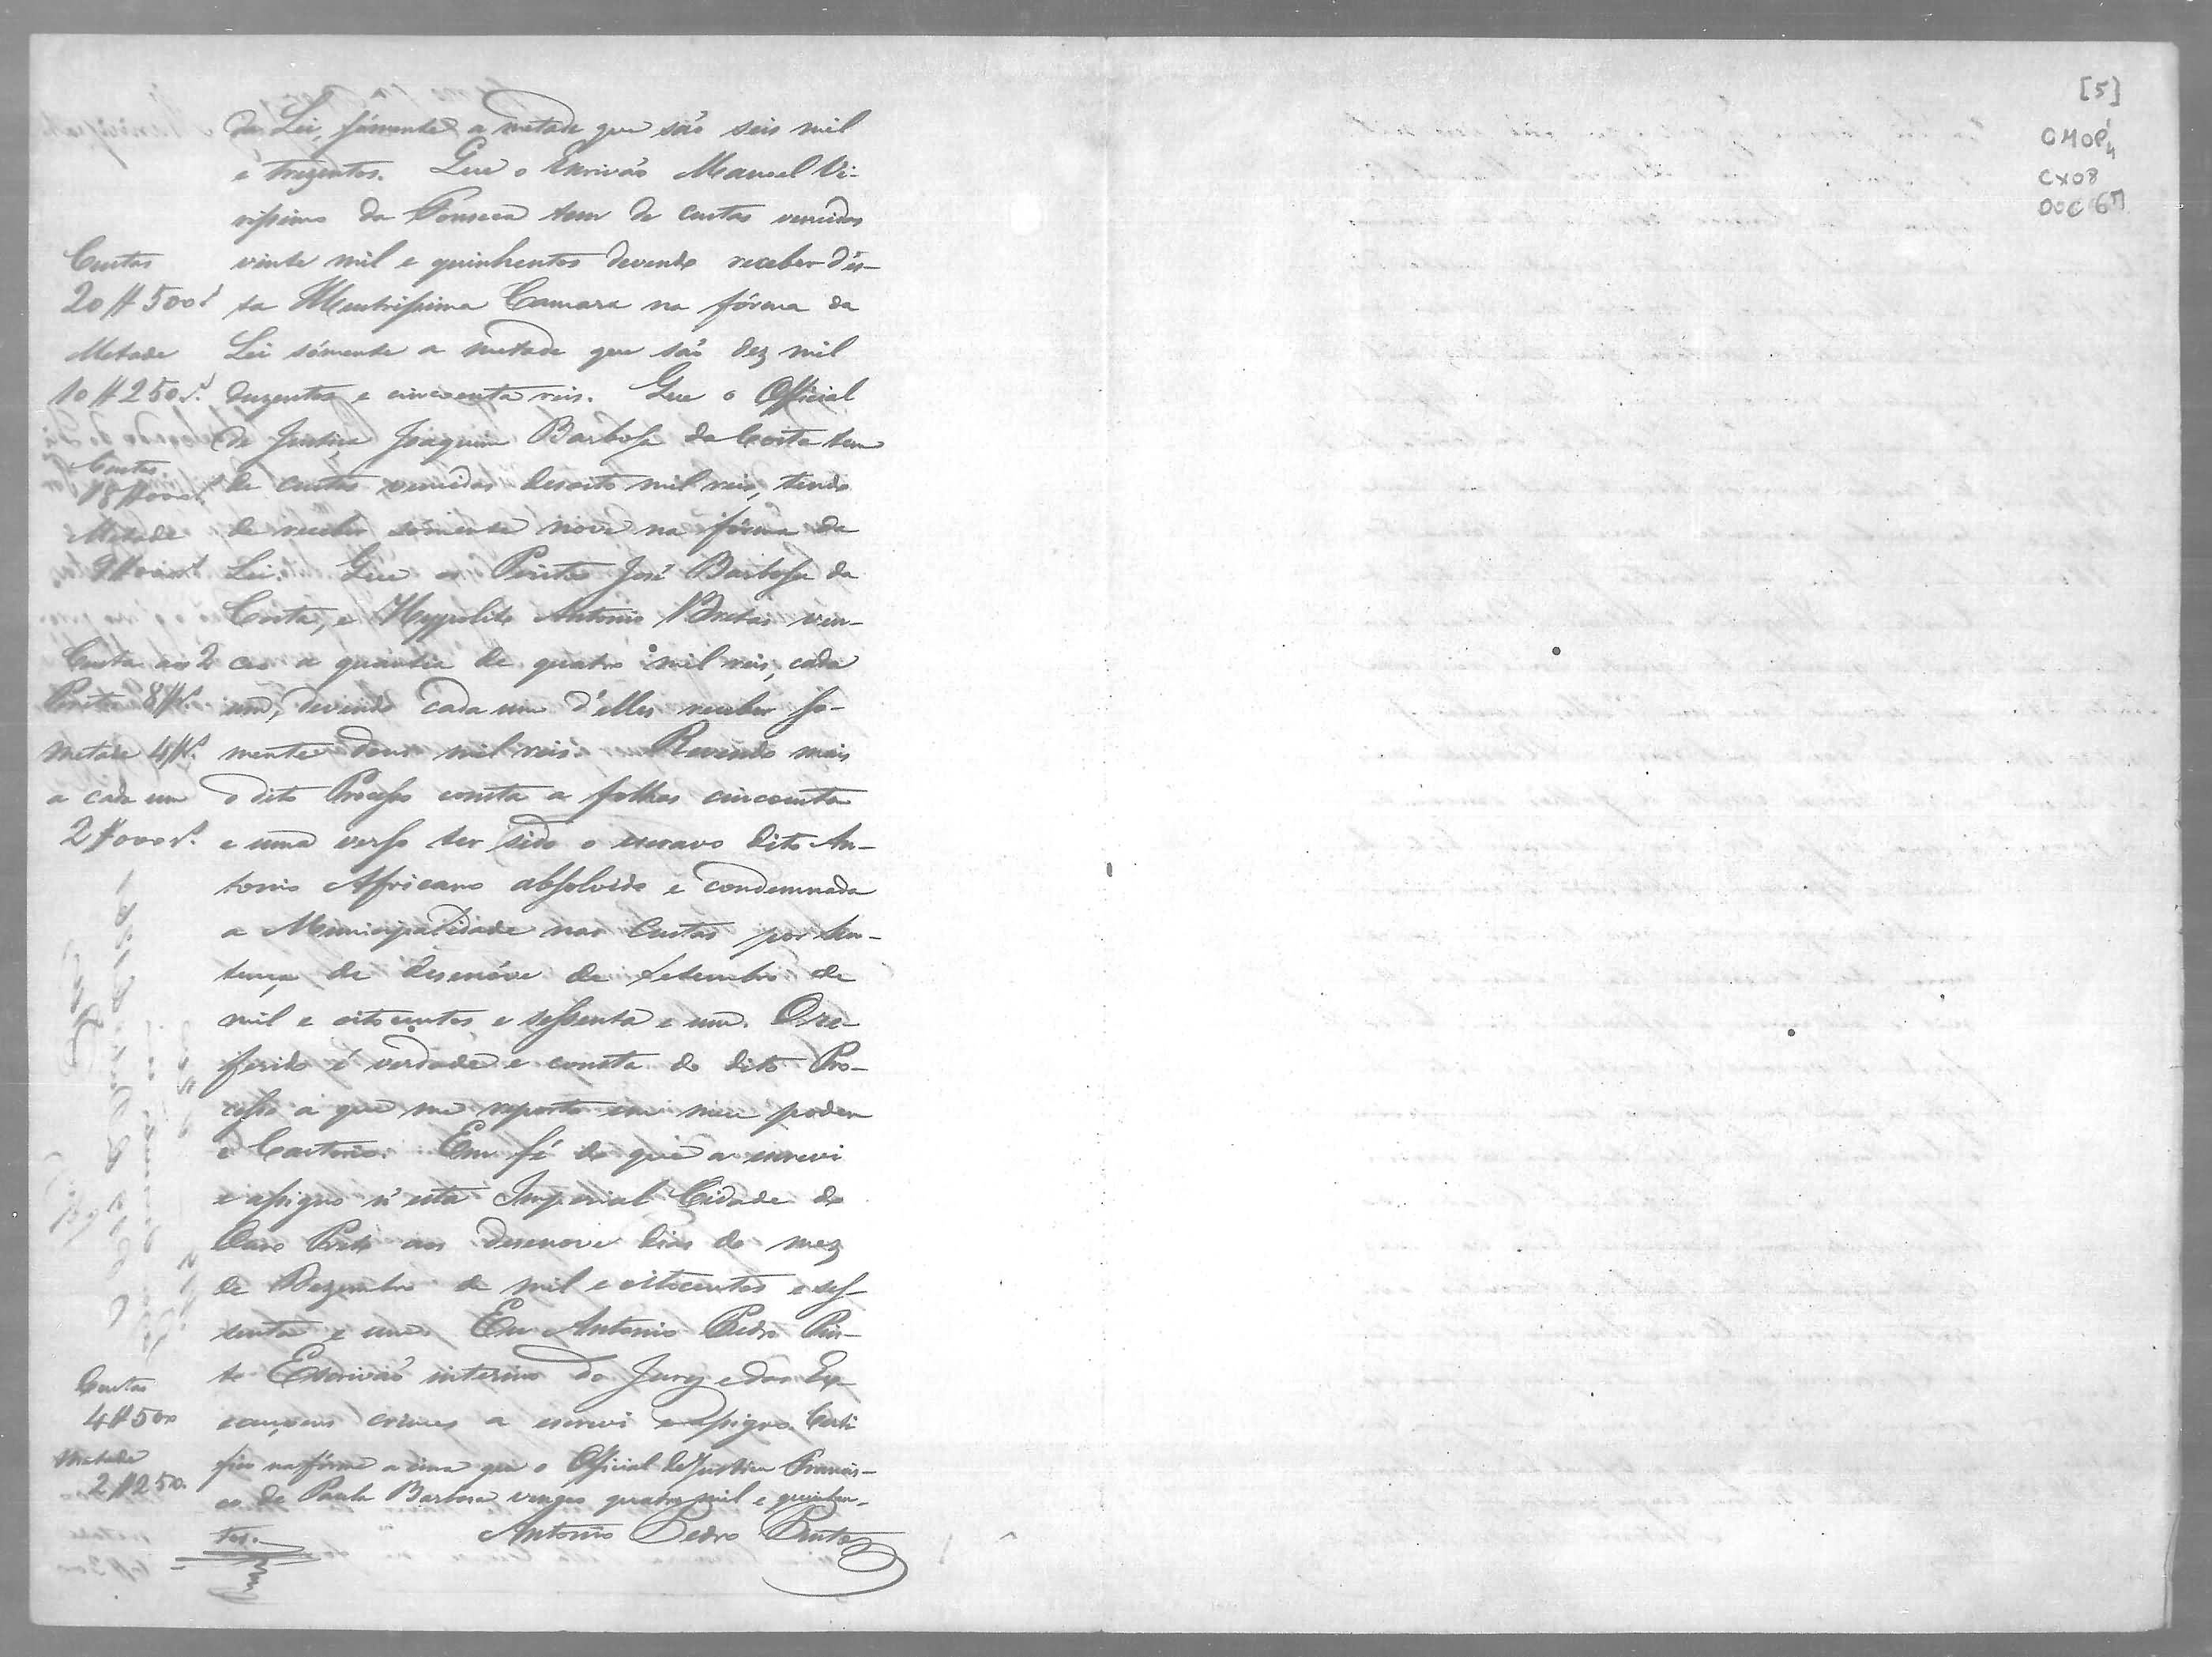 da Lei, sómente a metade que são seis mil
e trezentos. Que o Escrivão Manoel Ve-
rissimo da Fonseca tem de custas vencidas
Custas
vinte mil e quinhentos devendo receber d'és-
20$500rs
ta Illustrissima Camara na fórma da
Metade
Lei sómente a metade que são dez mil
10$250rs.
duzentos e cincoenta reis. Que o Official
de Justiça Joaquim Barbosa da Costa tem
Custas
18$000rs
de custas vencidas desoito mil reis, tendo
Metade
de receber sómente nove na fórma da
9$000rs
Lei. Que os Peritos José Barbosa da
Costa, e Hyppolito Antonio Bretas ven-
Custa aos 2
ceo a quantia de quatro mil reis, cada
Peritos 8$rs.
um, devendo cada um d'elles receber só-
metade 4$rs.
mente dous mil reis. Revendo mais
a cada um
o dito Processo consta a folhas cincoenta
2$000rs.
e uma verso ter sido o escravo dito An-
tonio Africano absolvido e condemnada
a Municipalidade nas Custas por sen-
tença de desenóve de Setembro de
mil e oitocentos e sessenta e um. O re-
ferido é verdade e consta do dito Pro-
cesso a que me reporto em meu poder
e Cartorio. Em fé do que a escrevi
e assigno n'esta Imperial Cidade do
Ouro Preto aos desenove dias do mez
de Dezembro de mil e oitocentos e ses-
senta e um. Eu Antonio Pedro Pin-
to Escrivão interino do Jury e das Ex-
Custas
4$500
ecuçoens crimes a escrevi e assigno. Certi
Metade
fico na fórma acima que o Official de Justiça Francis-
2$250.
co de Paula Barbosa venceo quatro mil e quinhen-
tos.
Antonio Pedro Pinto
[5]
CX08
DOC 67